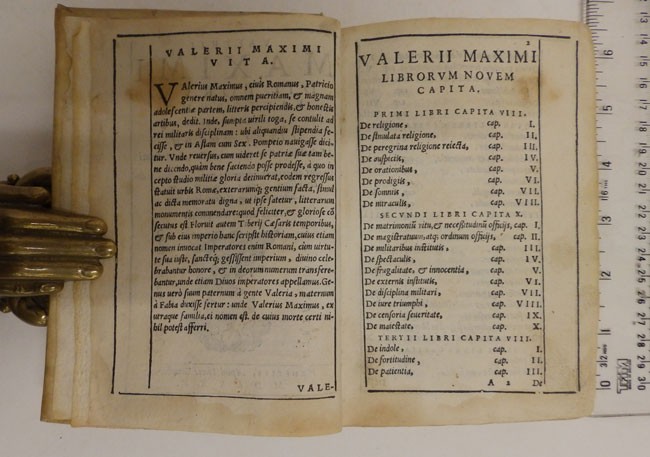 VALERII MAXIMI
VITA.
VAlerius Maximus, ciuis Romanus, Patricio
genere natus, omnem pueritiam, & magnam
adolescentiæ partem, litteris percipiendis, & honestis
artibus, dedit. Inde, sumpta uirili toga, se contulit ad
rei militaris disciplinam: ubi aliquandiu stipendia fe-
cisse, & in Asiam cum Sex. Pompeio nauigasse dici-
tur. Vnde reuersus, cum uideret se patriæ suæ tam be-
ne dicendo, quàm bene faciendo posse prodesse, à quo in
cepto studio militiæ gloria decinuerat, eodem regressus
statuit urbis Romæ, exterarumq; gentium facta, simul
ac dicta memoratu digna, ut ipse fatetur, litterarum
monumentis commendare: quod feliciter, & gloriose cō
secutus est. Floruit autem Tiberij Cæsaris temporibus,
& sub eius imperio hanc scripsit historiam, cuius etiam
nomen inuocat. Imperatores enim Romani, cùm virtu-
te sua iustè, sanctéq; gessissent imperium, diuino cele-
brabantur honore, & in deorum numerum transfere-
bantur, unde etiam Diuos imperatores appellamus. Ge-
nus uerò suum paternum à gente Valeria, maternum
à Fabia duxisse fertur: unde Valerius Maximus, ex
utraque familia, ei nomen est. de cuius morte certi ni-
hil potest afferri.
VALE-
2
VALERII MAXIMI
LIBRORVM NOVEM
CAPITA.
PRIMI LIBRI CAPITA VIII.
De religione, cap. I.
De simulata religione, cap. II.
De peregrina religione reiecta, cap. III.
De auspicijs, cap. IV.
De ominibus, cap. V.
De prodigijs, cap. VI.
De somnijs, cap. VII.
De miraculis, cap. VIII.
SECVNDI LIBRI CAPITA X.
De matrimoniū ritu, & necessitudinū officijs, cap. I.
De magistratuum, atq; ordinum officijs, cap. II.
De militaribus institutis, cap. III.
De spectaculis, cap. IV.
De frugalitate, & innocentia, cap. V.
De externis institutis, cap. VI.
De disciplina militari, cap. VII.
De iure triumphi, cap. VIII.
De censoria seueritate, cap. IX.
De maiestate, cap. X.
TERTII LIBRI CAPITA VIII.
De indole, cap. I.
De fortitudine, cap. II.
De patientia, cap. III.
A 2 De